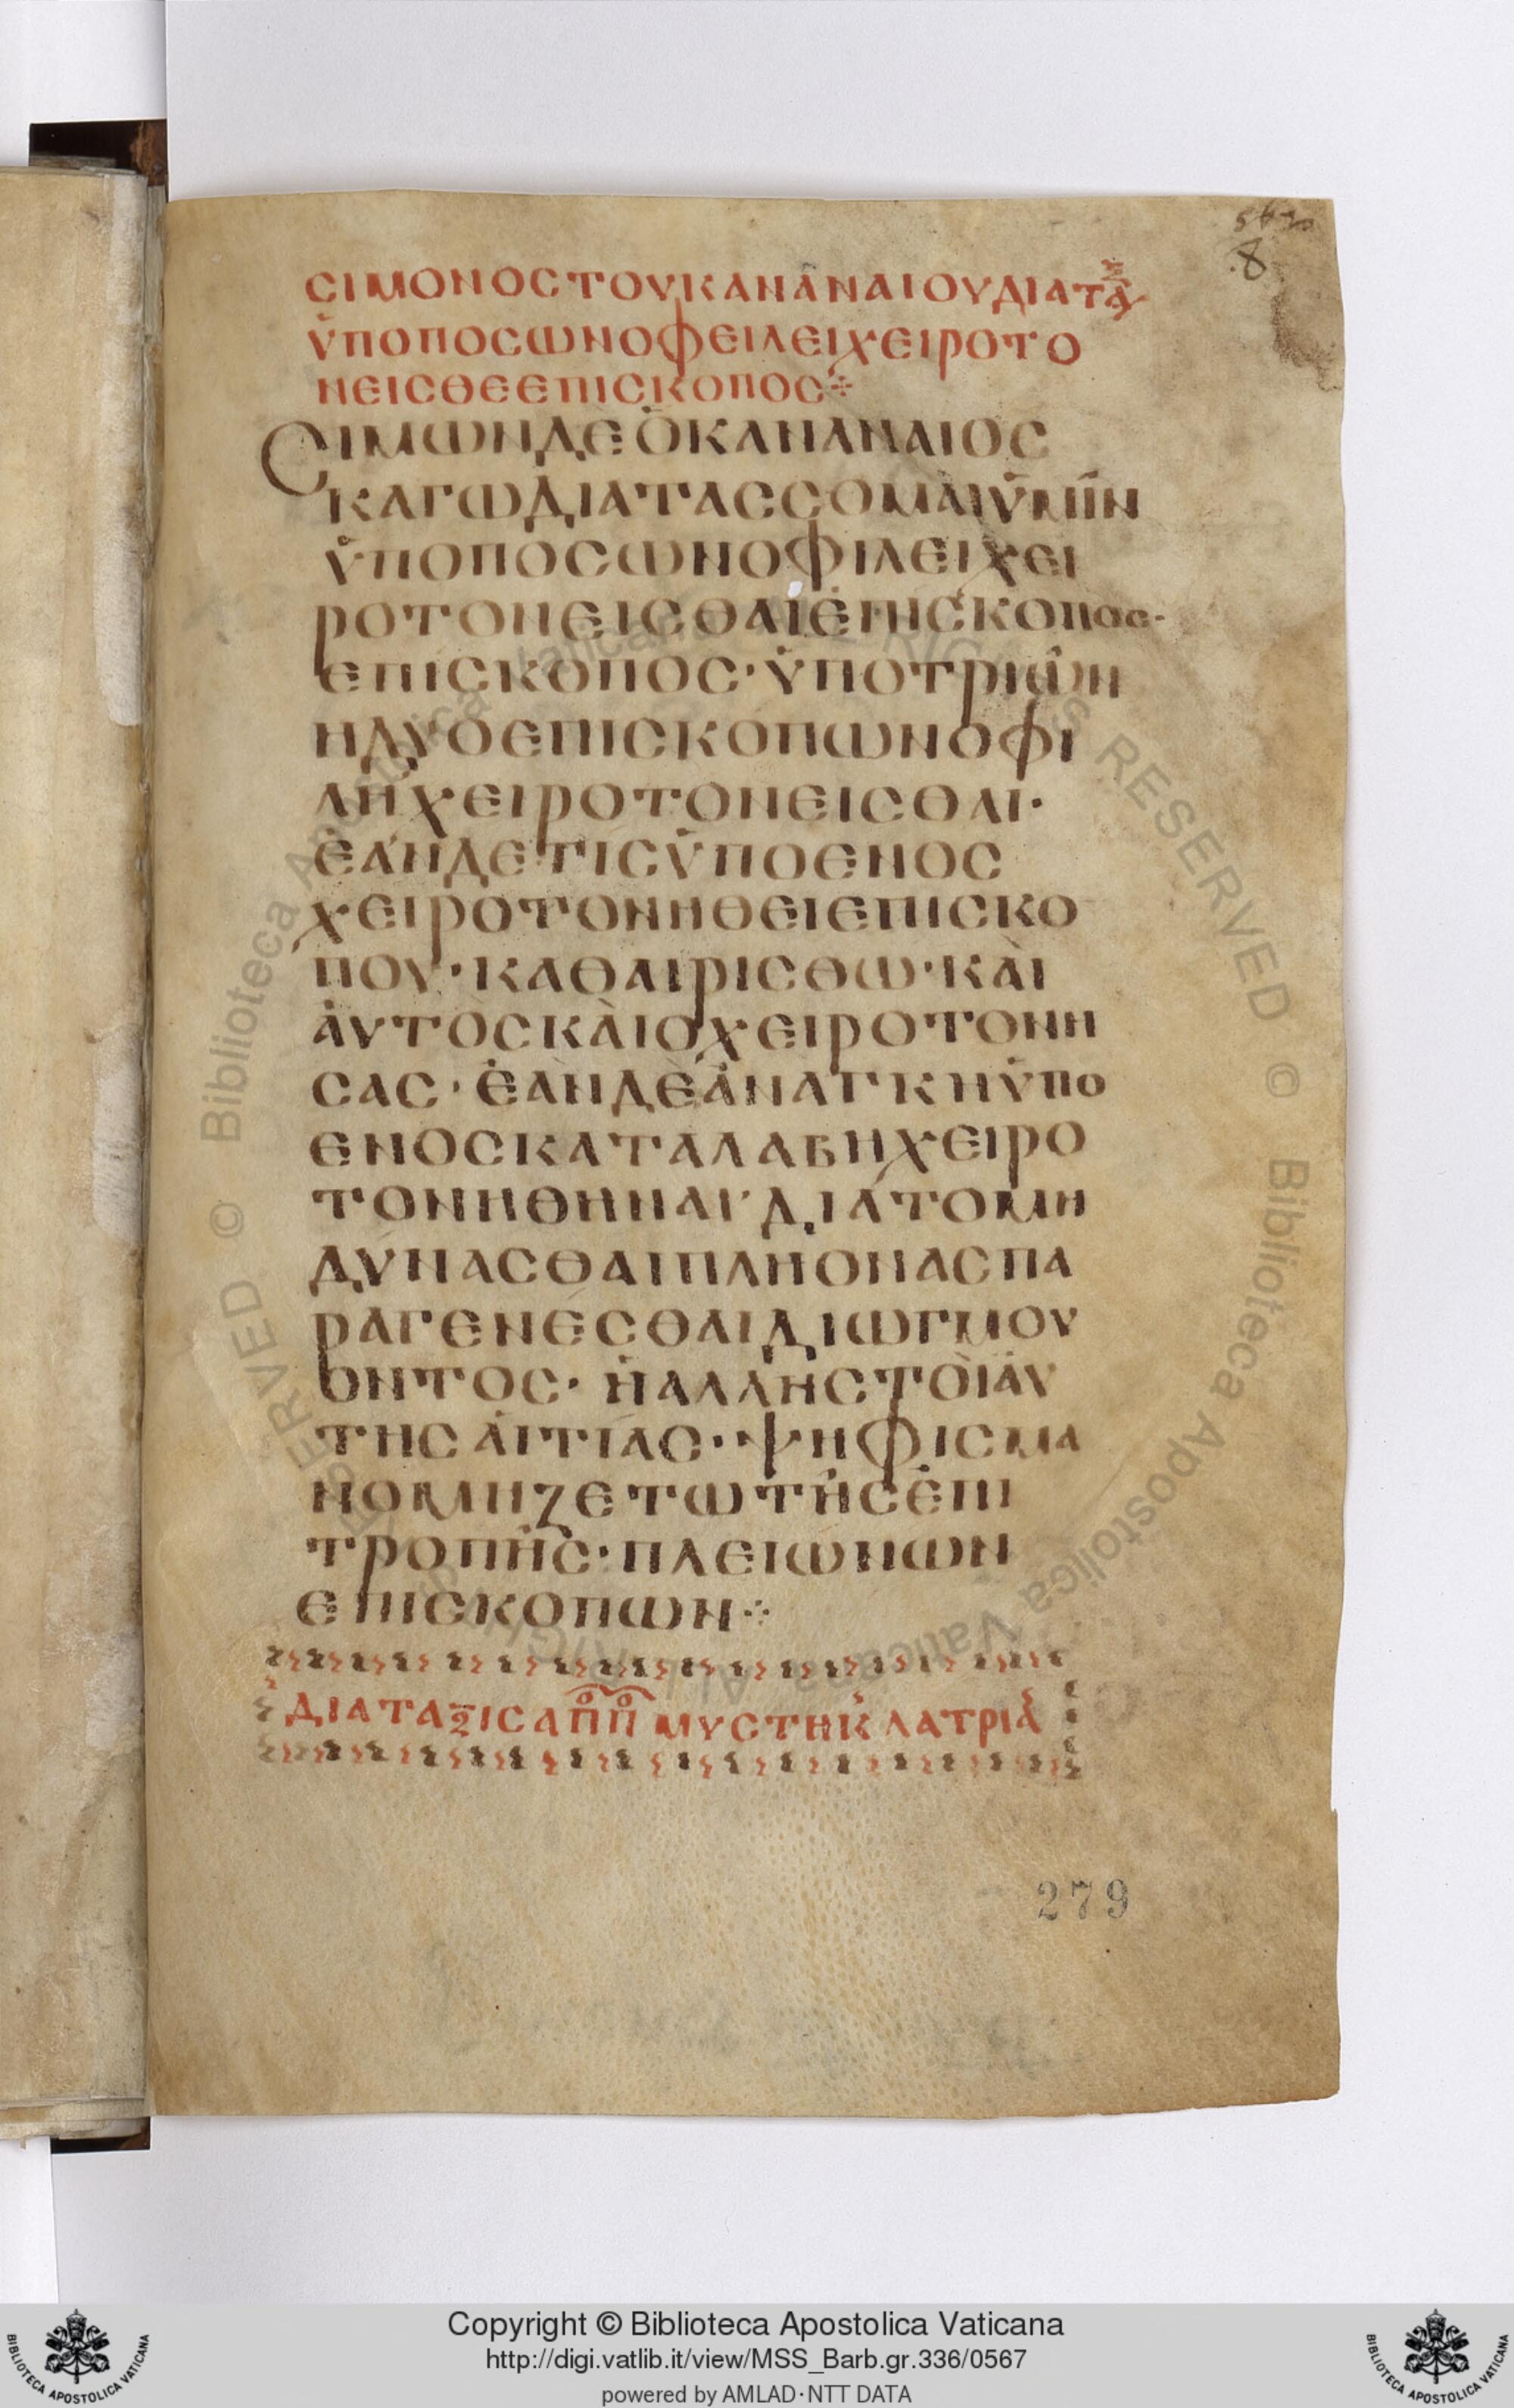 8
ΣΙΜΟΝΟΣΤΟΥΚΑΝΑΝΑΙΟΥΔΙΑΤΑΞ
ὙΠΟΠΟΣΩΝΟΦΕΙΛΕΙΧΕΙΡΟΤΟ
ΝΕΙΣΘΕΕΠΙΣΚΟΠΟΣ⁘
ΣΙΜΩΝΔΕὉΚΑΝΑΝΑΙΟΣ
ΚΑΓΩΔΙΑΤΑΣΣΟΜΑΙὙΜΙΝ
ὙΠΟΠΟΣΩΝΟΦΙΛΕΙΧΕΙ
ΡΟΤΟΝΕΙΣΘΑΙἘΠΗΣΚΟΠΟΣ·
ΕΠΙΣΚΟΠΟΣ·ὙΠΟΤΡΙΩΝ
ΗΔΥΟΕΠΙΣΚΟΠΩΝΟΦΙ
ΛΗΧΕΙΡΟΤΟΝΕΙΣΘΑΙ·
ΕΑΝΔΕΤΙΣὙΠΟΕΝΟΣ
ΧΕΙΡΟΤΟΝΗΘΕΙΕΠΙΣΚΟ
ΠΟΥ·ΚΑΘΑΙΡΙΣΘΩ·ΚΑῚ
ἈΥΤΟΣΚΑῚΟΧΕΙΡΟΤΟΝΗ
ΣΑΣ·ἘΑΝΔΕἈΝΑΓΚΗὙΠΟ
ΕΝΟΣΚΑΤΑΛΑΒΗΧΕΙΡΟ
ΤΟΝΗΘΗΝΑΙ·ΔΙΑΤΟΜΗ
ΔΥΝΑΣΘΑΙΠΛΗΟΝΑΣΠΑ
ΡΑΓΕΝΕΣΘΑΙΔΙΩΓΜΟΥ
ΟΝΤΟΣ·ἨΑΛΛΗΣΤΟΙΑΥ
ΤΗΣΑΙΤΙΑΣ·ΨΗΦΙΣΜΑ
ΚΟΜΗΖΕΤΩΤΗΣἘΠΙ
ΤΡΟΠΗΣ·ΠΛΕΙΩΝΩΝ
ΕΠΙΣΚΟΠΩΝ⁘
ΔΙΑΤΑΞΙΣΑΠΠ ΜΥΣΤΗΚ ΛΑΤΡΙΑ
279
Copyright © Biblioteca Apostolica Vaticana
http://digi.vatlib.it/view/MSS_Barb.gr.336/0567
powered by AMLAD·NTT DATA
BIBLIOTECA APOSTOLICA VATICANA
BIBLIOTECA APOSTOLICA VATICANA